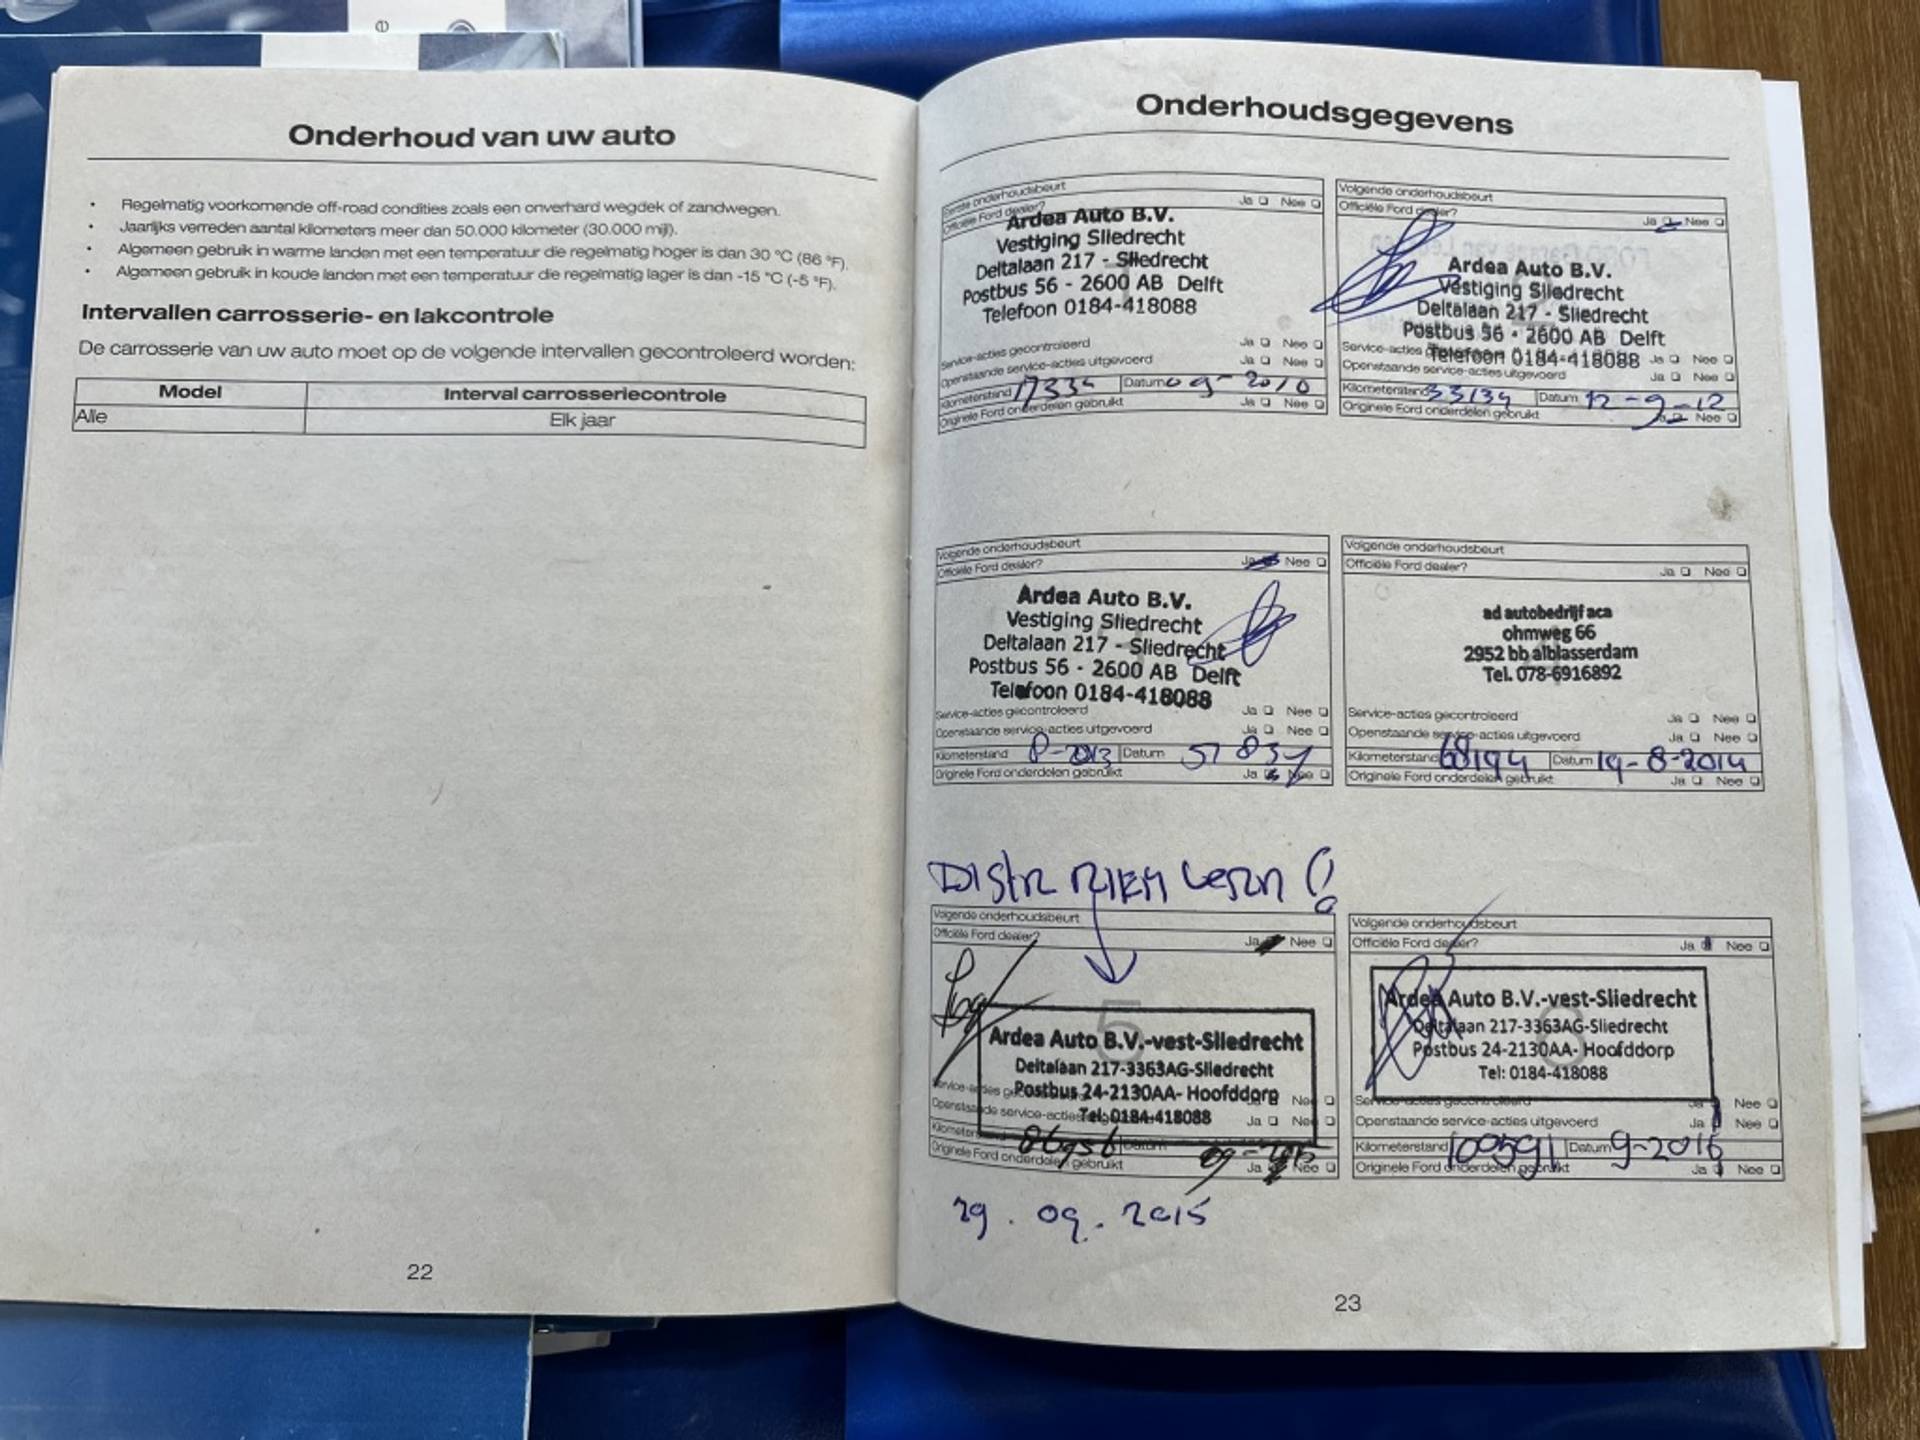 Onderhoud van uw auto
• Regelmatig voorkomende off-road condities zoals een onverhard wegdek of zandwegen.
• Jaarlijks verreden aantal kilometers meer dan 50.000 kilometer (30.000 mijl).
• Algemeen gebruik in warme landen met een temperatuur die regelmatig hoger is dan 30 °C (86 °F).
• Algemeen gebruik in koude landen met een temperatuur die regelmatig lager is dan -15 °C (-5 °F).
Intervallen carrosserie- en lakcontrole
De carrosserie van uw auto moet op de volgende intervallen gecontroleerd worden:
Model Interval carrosseriecontrole
Alle Elk jaar
22
Onderhoudsgegevens
Eerste onderhoudsbeurt
Officiële Ford dealer? Ja Nee
Ardea Auto B.V.
Vestiging Sliedrecht
Deltalaan 217 - Sliedrecht
Postbus 56 - 2600 AB Delft
Telefoon 0184-418088
Service-acties gecontroleerd Ja Nee
Openstaande service-acties uitgevoerd Ja Nee
Kilometerstand 17335 Datum 09-2010
Originele Ford onderdelen gebruikt Ja Nee
Volgende onderhoudsbeurt
Officiële Ford dealer? Ja Nee
Ardea Auto B.V.
Vestiging Sliedrecht
Deltalaan 217 - Sliedrecht
Postbus 56 - 2600 AB Delft
Telefoon 0184-418088
Service-acties Ja Nee
Openstaande service-acties uitgevoerd Ja Nee
Kilometerstand 33134 Datum 12-9-12
Originele Ford onderdelen gebruikt Ja Nee
Volgende onderhoudsbeurt
Officiële Ford dealer? Ja Nee
Ardea Auto B.V.
Vestiging Sliedrecht
Deltalaan 217 - Sliedrecht
Postbus 56 - 2600 AB Delft
Telefoon 0184-418088
Service-acties gecontroleerd Ja Nee
Openstaande service-acties uitgevoerd Ja Nee
Kilometerstand 8-2013 Datum 51834
Originele Ford onderdelen gebruikt Ja Nee
Volgende onderhoudsbeurt
Officiële Ford dealer? Ja Nee
ad autobedrijf aca
ohmweg 66
2952 bb alblasserdam
Tel. 078-6916892
Service-acties gecontroleerd Ja Nee
Openstaande service-acties uitgevoerd Ja Nee
Kilometerstand 68194 Datum 19-8-2014
Originele Ford onderdelen gebruikt Ja Nee
Distr riem
Volgende onderhoudsbeurt
Officiële Ford dealer? Ja Nee
5
Ardea Auto B.V.-vest-Sliedrecht
Deltalaan 217-3363AG-Sliedrecht
Postbus 24-2130AA- Hoofddorp
Tel: 0184-418088
Service-acties Ja Nee
Openstaande service-acties Ja Nee
Kilometerstand 86956 Datum 09-2015
Originele Ford onderdelen gebruikt Ja Nee
29.09.2015
Volgende onderhoudsbeurt
Officiële Ford dealer? Ja Nee
6
Ardea Auto B.V.-vest-Sliedrecht
Deltalaan 217-3363AG-Sliedrecht
Postbus 24-2130AA- Hoofddorp
Tel: 0184-418088
Service-acties gecontroleerd Ja Nee
Openstaande service-acties uitgevoerd Ja Nee
Kilometerstand 100591 Datum 9-2016
Originele Ford onderdelen gebruikt Ja Nee
23